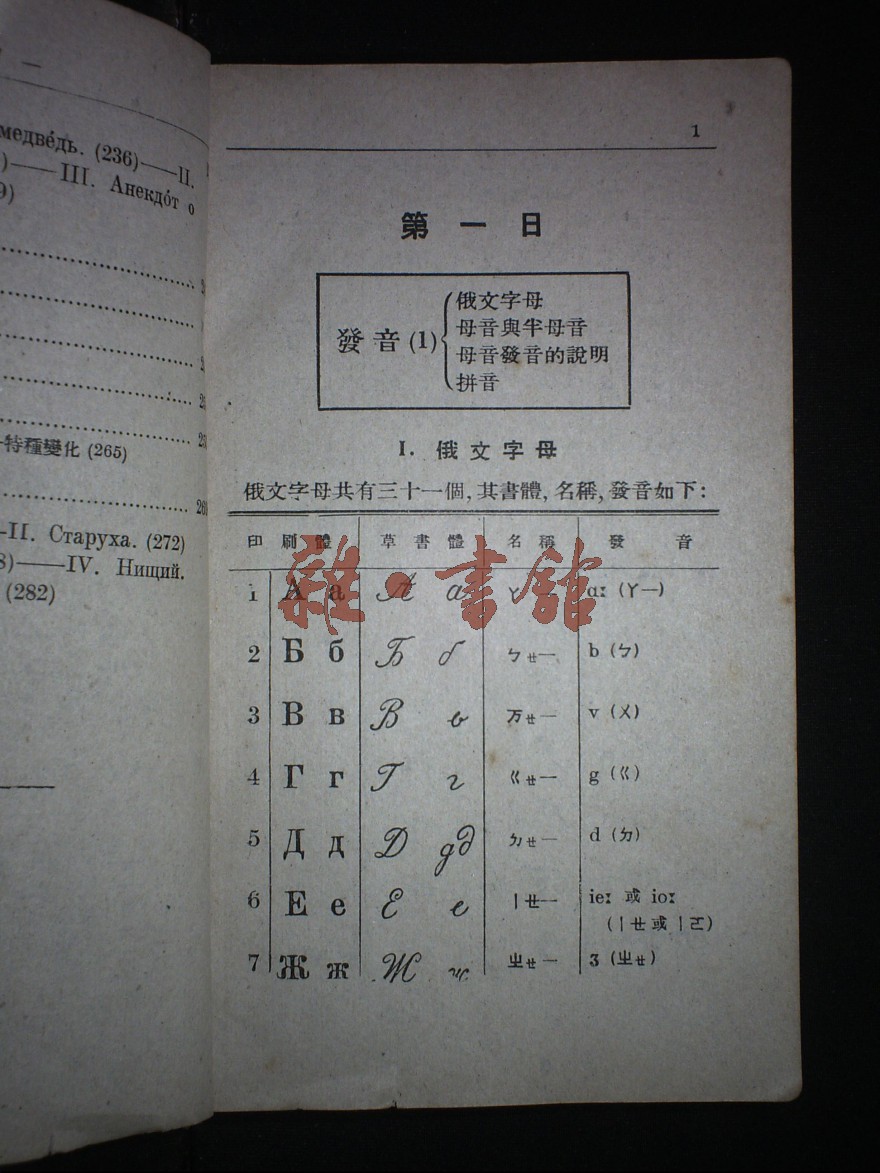 一
медвéдь. (236)——II.
)——III. Анекдóт о
9)
特種變化 (265)
II. Старуха. (272)
8)——IV. Нищий.
(282)
1
第一日
發音(1)
俄文字母
母音與半母音
母音發音的說明
拼音
I. 俄文字母
俄文字母共有三十一個, 其書體, 名稱, 發音如下:
印刷體 草書體 名稱 發音
1 А а А а ㄚ一 ɑː (ㄚ一)
2 Б б Б б ㄅㄝ一 b (ㄅ)
3 В в В в 万ㄝ一 v (ㄨ)
4 Г г Г г ㄍㄝ一 g (ㄍ)
5 Д д Д д ㄉㄝ一 d (ㄉ)
6 Е е Е е ㄧㄝ一 ieː 或 ioː
(ㄧㄝ或ㄧㄛ)
7 Ж ж Ж ж ㄓㄝ一 ʒ (ㄓㄝ)
雜·書館